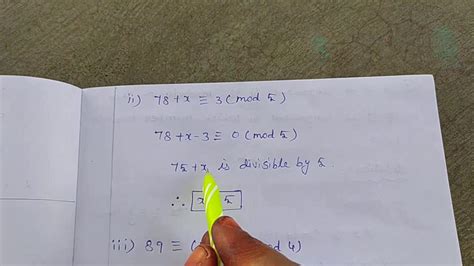 ii) 78 + x ≡ 3 (mod 5)
78 + x - 3 ≡ 0 (mod 5)
75 + x is divisible by 5
∴ x 5
iii) 89 ≡ ( mod 4)